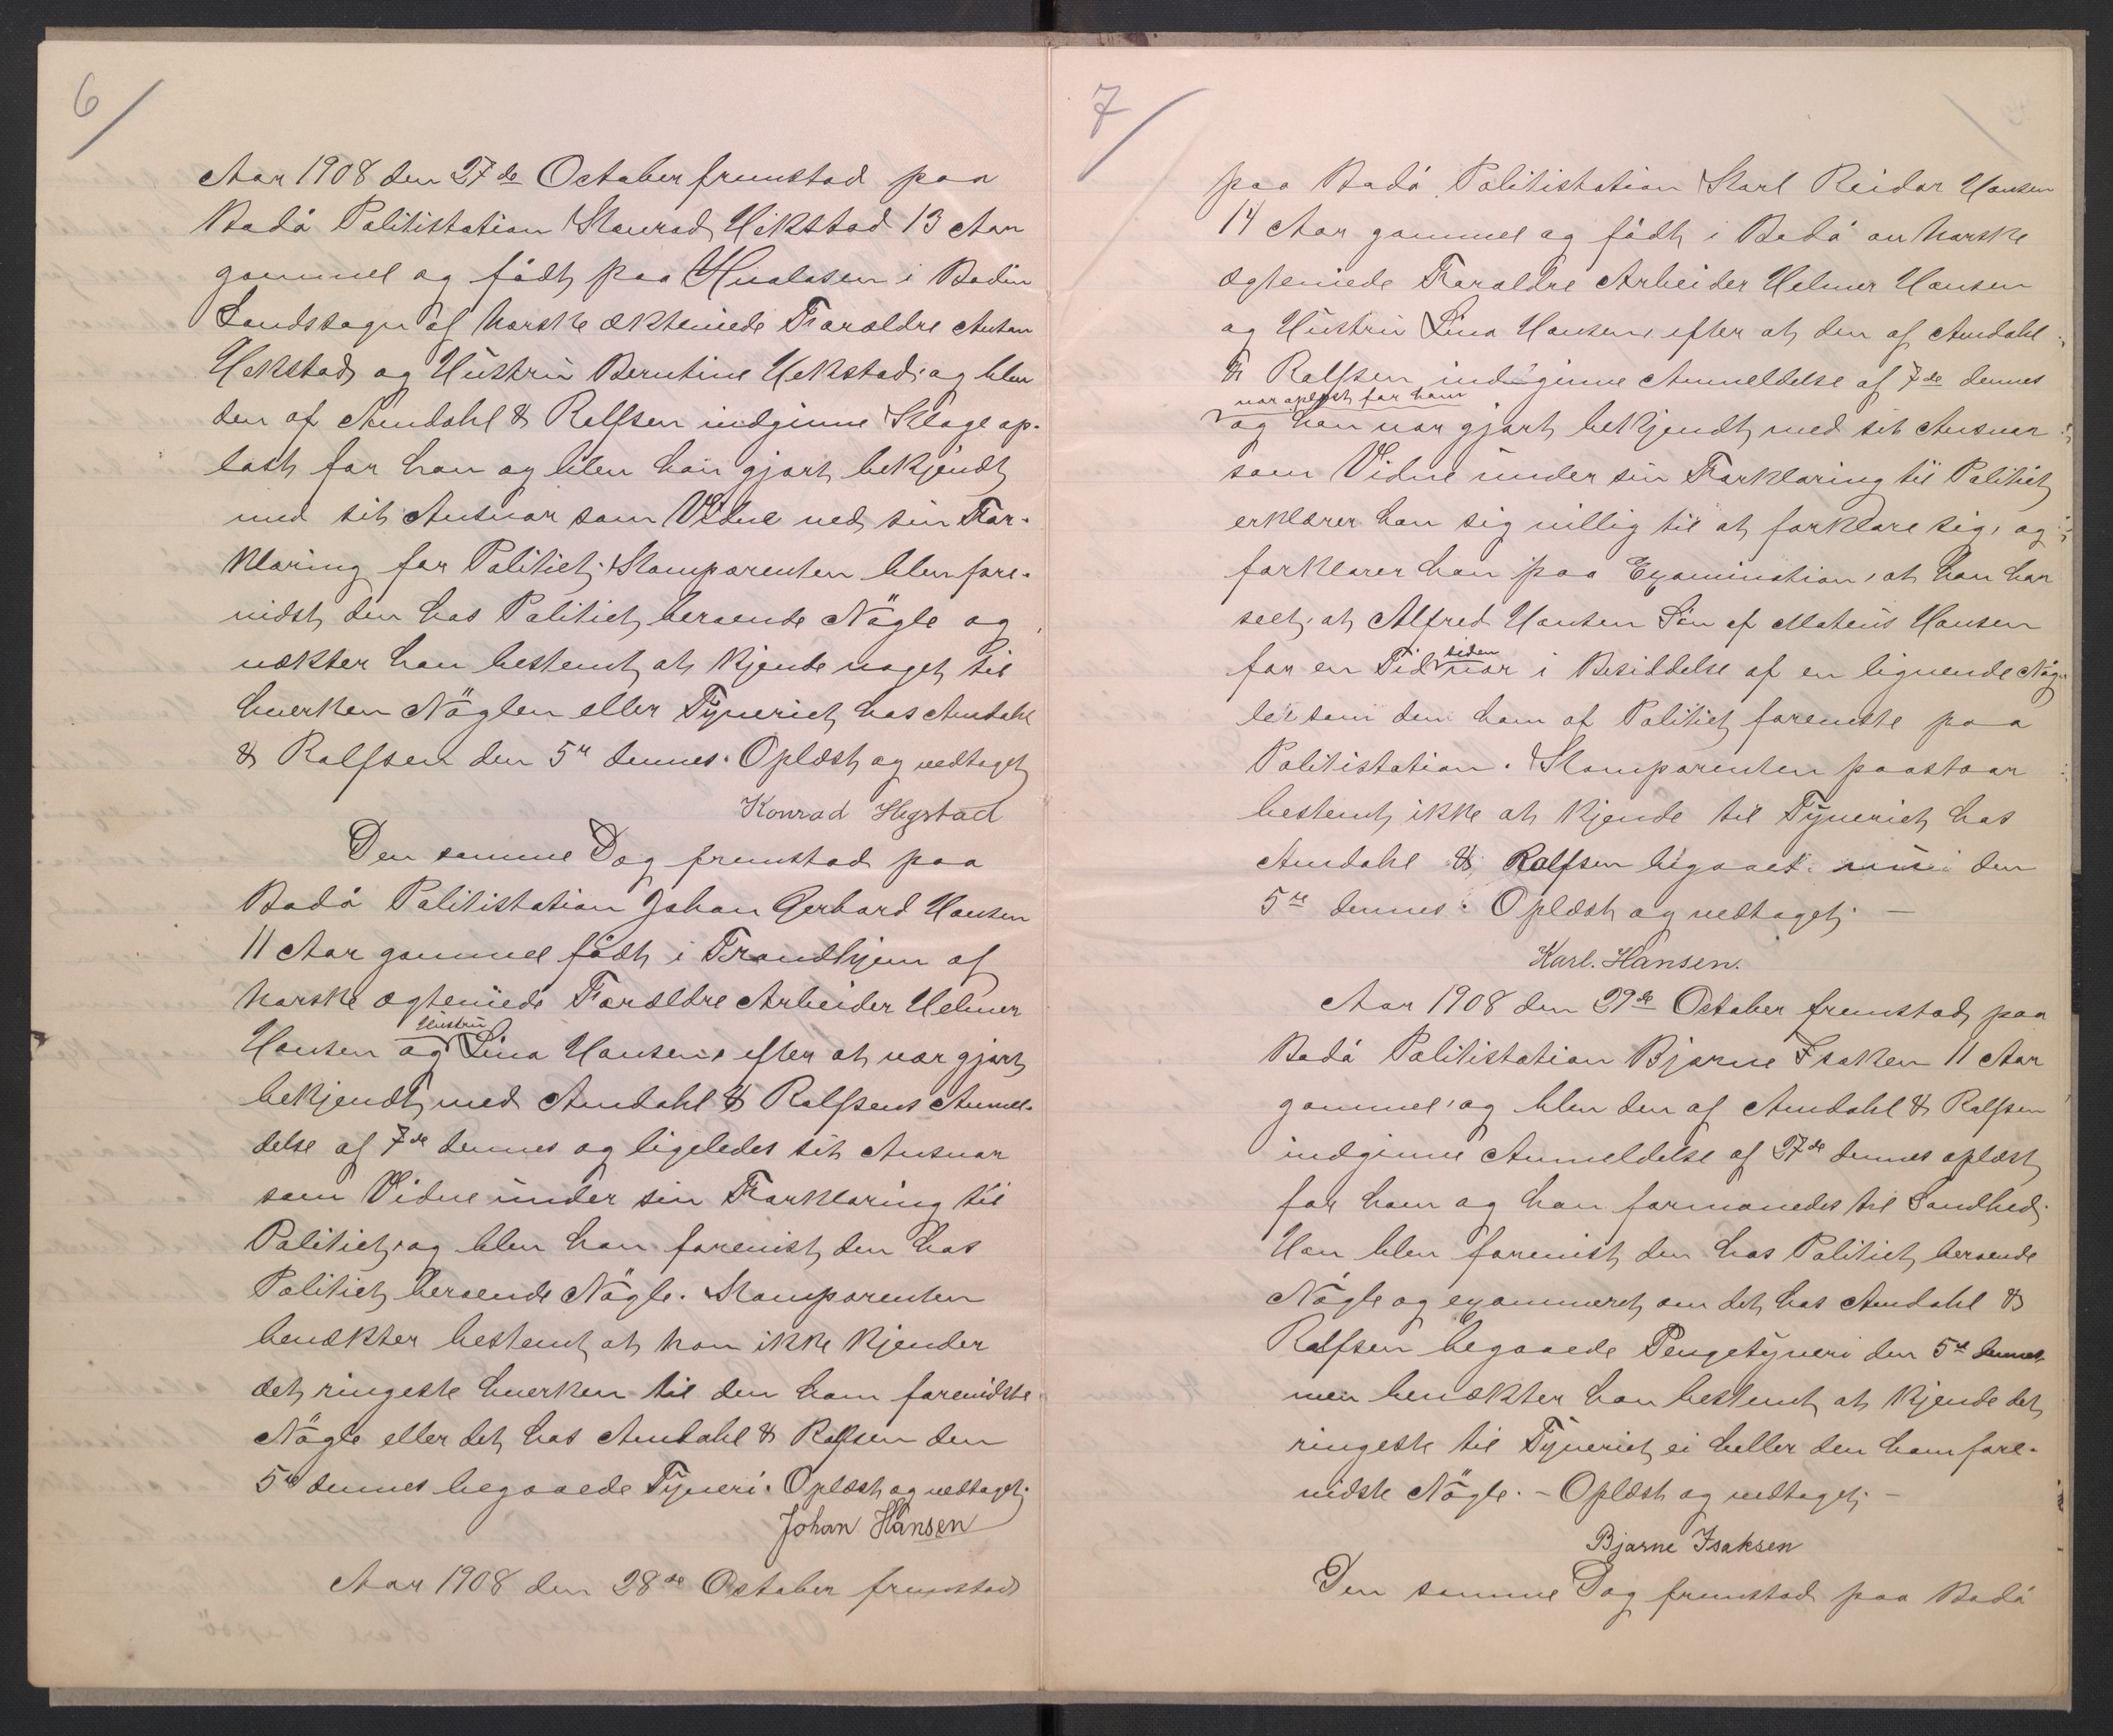 6/
Aar 1908 den 27de October fremstod paa
Bodö Politistation Konrad Hekstad 13 Aar
gammel og födt paa Hvalosen i Bodin
Landssogn af norske ækteviede Forældre Anton
Hekstad og Hustru Berntine Hekstad, og blev
den af Amdahl & Rolfsen indgivne Klage op-
læst for han og blev han gjort bekjendt
med sit Ansvar som Vidne ved sin For-
klaring for Politiet. Komparenten blev fore-
vidst den hos Politiet beroende Nögle og
nækter han bestemt at kjende noget til
hverken Nöglen eller Tyveriet hos Amdahl
& Rolfsen den 5te dennes. Oplæst og vedtaget
Konrad Hegstad
Den samme Dag fremstod paa
Bodö Politistation Johan Gerhard Hansen
11 Aar gammel födt i Trondhjem af
norske ægteviede Forældre Arbeider Helmer
Hustru
Hansen og Lina Hansen, efter at var gjort
bekjendt med Amdahl & Rolfsens Anmel-
delse af 7de dennes og ligeledes sit Ansvar
som Vidne under sin Forklaring til
Politiet, og blev han forevist den hos
Politiet beroende Nögle. Komparenten
benækter bestemt at han ikke kjender
det ringeste hverken til den ham forevidste
Nögle eller det hos Amdahl & Rolfsen den
5te dennes begaaede Tyveri. Oplæst og vedtaget.
Johan Hansen
Aar 1908 den 28de October fremstod
7/
paa Bodö Politistation Karl Reidar Hansen
14 Aar gammel og födt i Bodö av norske
ægteviede Forældre Arbeider Helmer Hansen
og Hustru Lina Hansen, efter at den af Amdahl
& Rolfsen indgivne Anmeldelse af 7de dennes
var oplæst for ham
og han var gjort bekjendt med sit Ansvar
som Vidne under sin Forklaring til Politiet
erklærer han sig villig til at forklare sig, og
forklarer han paa Examination, at han har
seet, at Alfred Hansen Sön af Mateus Hansen
siden
for en Tid var i Besiddelse af en lignende Nög-
le som den ham af Politiet foreviste paa
Politistation. Komparenten paastaar
bestemt ikke at kjende til Tyveriet hos
Amdahl & Rolfsen begaaet den
5te dennes. Oplæst og vedtaget. —
Karl. Hansen.
Aar 1908 den 29de October fremstod paa
Bodö Politistation Bjarne Isaksen 11 Aar
gammel, og blev den af Amdahl & Rolfsen
indgivne Anmeldelse af 27de dennes oplæst
for ham og han formanedes til Sandhed.
Han blev forevist den hos Politiet beroende
Nögle og examineret om det hos Amdahl &
Rolfsen begaaede Pengetyveri den 5te dennes
men benækter han bestemt at kjende det
ringeste til Tyveriet ei heller den ham fore-
vidste Nögle. – Oplæst og vedtaget. –
Bjarne Isaksen
Den samme Dag fremstod paa Bodö